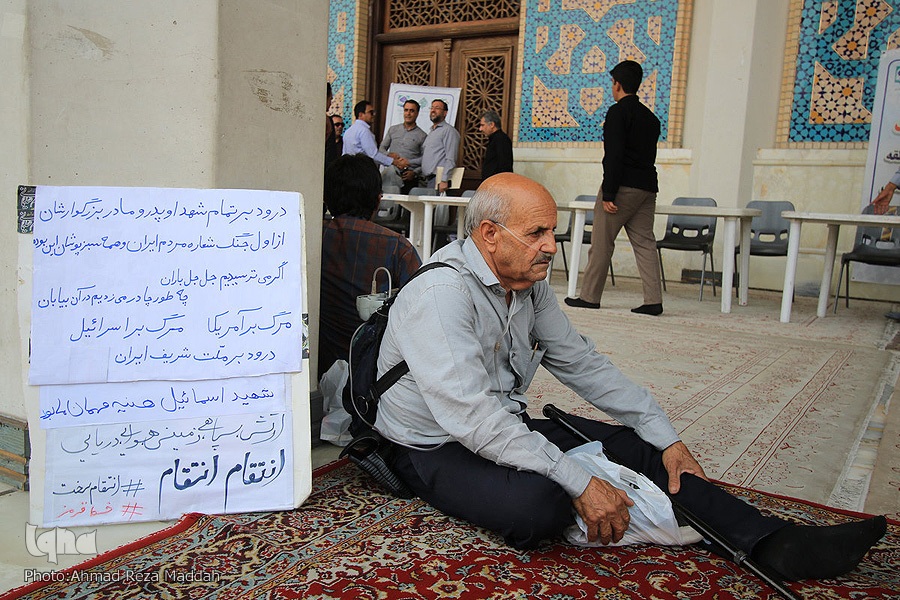 درود بر تمام شهدا و پدر و مادر بزرگوارشان
از اول جنگ شعار مردم ایران و همه سبز پوشان این بوده
اگر می ترسیدیم جل جل باران
چطور چادر می زدیم در آن بیابان
مرگ بر آمریکا مرگ بر اسرائیل
درود بر ملت شریف ایران
شهید اسماعیل هنیه مهمان ما بود
ارتش، سپاهی، زمینی هوایی دریایی
انتقام انتقام
#انتقام سخت
#
iqna
Photo:Ahmad Reza Maddah